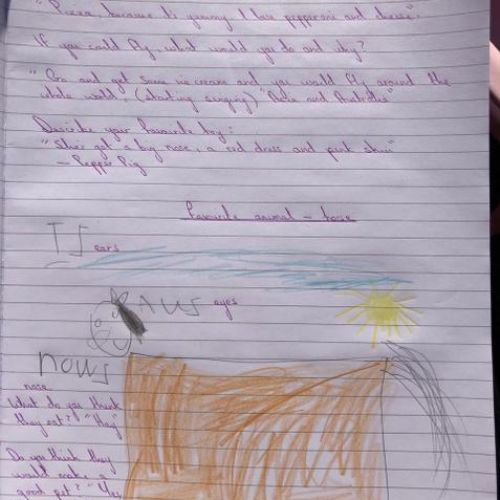 "Pizza, because it's yummy I love pepperoni and cheese".
If you could fly, what would you do and why?
"Go and get some ice cream and you would fly around the
whole world. (starting singing) "and Australia"
Describe your favourite toy:
"She's got a big nose, a red dress and pink skin"
- Peppa Pig
Favourite animal - horse
ears
eyes
nows
nose
What do you think
they eat? "Hay"
Do you think they
would make a
good pet? "Yes